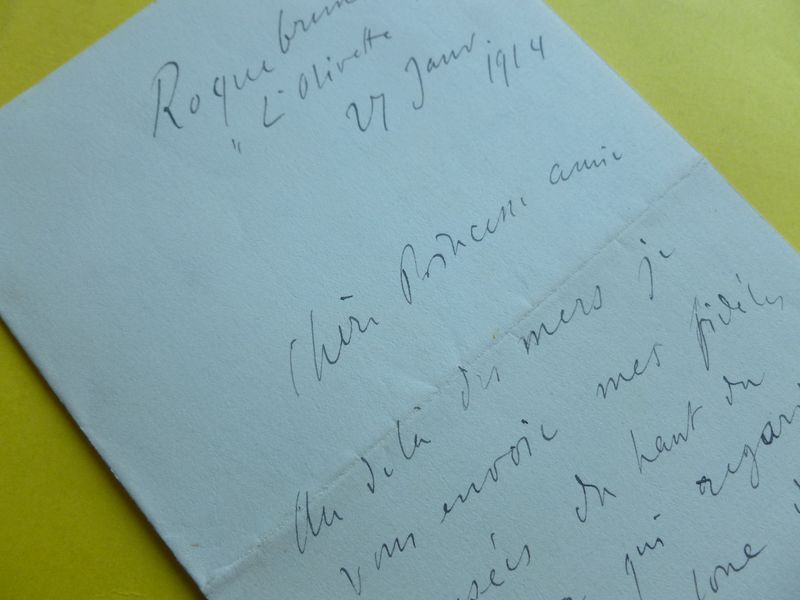 Roquebrune
"L'Olivette
27 Janv. 1914
Chère Princesse amie
Au delà des mers je
vous envoie mes fidèles
pensées du haut du
qui regar